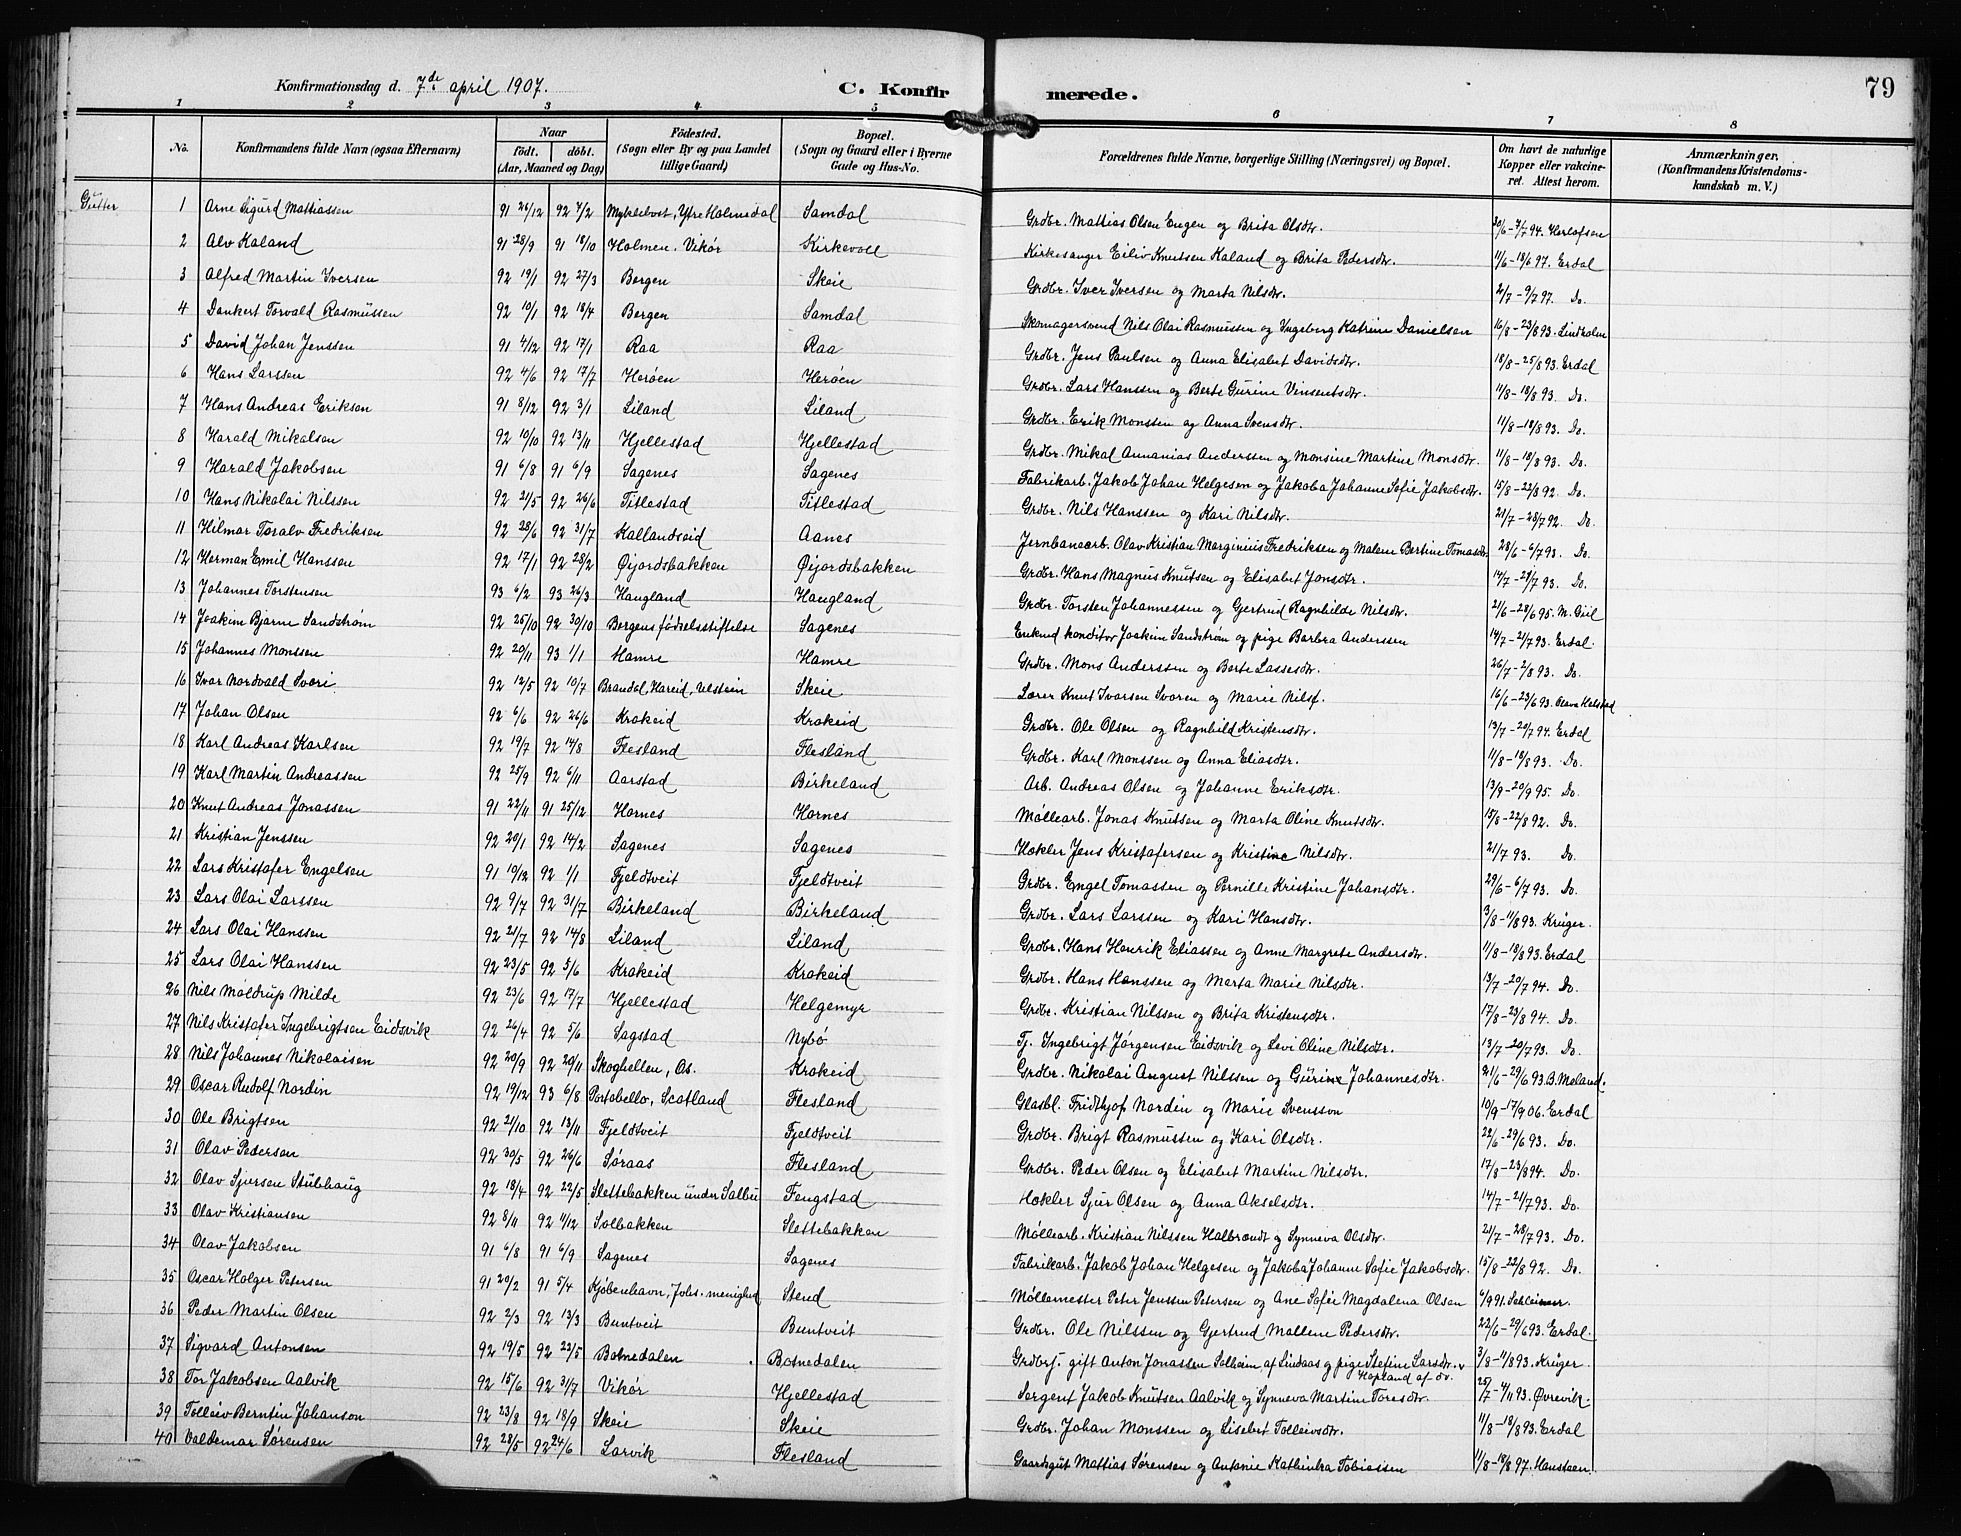 Konfirmationsdag d. 7de april 1907.
C. Konfirmerede.
79
1 2 3 4 5 6 7 8
No.
Konfirmandens fulde Navn (ogsaa Efternavn)
Naar
født. døbt.
(Aar, Maaned og Dag)
Födested.
(Sogn eller By og paa Landet
tillige Gaard)
Bopæl.
(Sogn og Gaard eller i Byerne
Gade og Hus-No.
Forældrenes fulde Navne, borgerlige Stilling (Næringsvei) og Bopæl.
Om havt de naturlige
Kopper eller vakcine-
ret. Attest herom.
Anmærkninger.
(Konfirmandens Kristendoms-
kundskab m. V.)
Gutter
1 Arne Sigurd Mattiassen 91 26/12 92 7/2 Myklebost, Ytre Holmedal Samdal Grdbr. Mattias Olsen Engen og Brita Olsdtr. 30/6-7/7 94. Herlofsen
2 Alv Kaland 91 28/9 91 18/10 Holmen. Vikör Kirkevoll Kirkesanger Eiliv Knutsen Kaland og Brita Pedersdtr. 11/6-18/6 97. Erdal
3 Alfred Martin Iversen 92 19/1 92 27/3 Bergen Skeie Grdbr. Iver Iversen og Marta Nilsdtr. 2/7-9/7 97. Do.
4 Dankert Torvald Rasmussen 92 10/1 92 18/4 Bergen Samdal Skomagersvend Nils Olai Rasmussen og Ingeborg Katrine Danielsen 16/8-23/8 93. Lindholm
5 David Johan Jenssen 91 4/12 92 17/1 Raa Raa Grdbr. Jens Paulsen og Anna Elisabet Davidsdtr. 18/8-25/8 93. Erdal
6 Hans Larssen 92 4/6 92 17/7 Herøen Herøen Grdbr. Lars Hanssen og Berte Gurine Vinsentsdtr. 11/8-18/8 93. Do.
7 Hans Andreas Eriksen 91 8/12 92 3/1 Liland Liland Grdbr. Erik Monssen og Anna Svensdtr. 11/8-18/8 93. Do.
8 Harald Mikalsen 92 10/10 92 13/11 Hjellestad Hjellestad Grdbr. Mikal Annanias Anderssen og Monsine Martine Monsdtr. 11/8-18/8 93. Do.
9 Harald Jakobsen 91 6/8 91 6/9 Sagenes Sagenes Fabrikarb. Jakob Johan Helgesen og Jakoba Johanne Sofie Jakobsdtr. 15/8-22/8 92. Do.
10 Hans Nikolai Nilssen 92 21/5 92 26/6 Titlestad Titlestad Grdbr. Nils Hanssen og Kari Nilsdtr. 21/7-28/7 92. Do.
11 Hilmar Toralv Fredriksen 92 28/6 92 31/7 Kallandseid Aanes Jernbanearb. Olav Kristian Marginius Fredriksen og Malene Bertine Tomasdtr. 28/6-6/7 93. Do.
12 Herman Emil Hanssen 92 17/1 92 28/2 Øijordsbakken Øijordsbakken Grdbr. Hans Magnus Knutsen og Elisabet Jonsdtr. 14/7-21/7 93. Do.
13 Johannes Torstensen 93 6/2 93 26/3 Haugland Haugland Grdbr. Torsten Johannessen og Gjertrud Ragnhilde Nilsdtr. 21/6-28/6 95.
14 Joakim Bjarne Sandstrøm 92 25/10 92 30/10 Bergens fødselsstiftelse Sagenes Enkmd konditor Joakim Sandstrøm og pige Barbra Anderssen 14/7-21/7 93. Erdal
15 Johannes Monssen 92 20/11 93 1/1 Hamre Hamre Grdbr. Mons Anderssen og Berte Lassesdtr. 26/7-2/8 93. Do.
16 Ivar Nordvald Svori 92 12/5 92 10/7 Brandal, Hareid, Ulstein Skeie Lærer Knut Ivarsen Svoren og Marie Nilsf. 16/6-23/6 93. Olava Helstad
17 Johan Olsen 92 6/6 92 26/6 Krokeid Krokeid Grdbr. Ole Olsen og Ragnhild Kristensdtr. 13/7-20/7 94. Erdal
18 Karl Andreas Karlsen 92 19/7 92 14/8 Flesland Flesland Grdbr. Karl Monssen og Anna Eliasdtr. 11/8-18/8 93. Do.
19 Karl Martin Andreassen 92 25/9 92 6/11 Aarstad Birkeland Arb. Andreas Olsen og Johanne Eriksdtr. 13/9-20/9 95. Do.
20 Knut Andreas Jonassen 91 22/11 91 25/12 Hornes Hornes Møllearb. Jonas Knutsen og Marta Oline Knutsdtr. 15/8-22/8 92. Do.
21 Kristian Jenssen 92 20/1 92 14/2 Sagenes Sagenes Høkler Jens Kristafersen og Kristine Nilsdtr. 21/7 93. Do.
22 Lars Kristafer Engelsen 91 19/12 92 1/1 Fjeldtveit Fjeldtveit Grdbr. Engel Tomassen og Pernille Kristine Johansdtr. 29/6-6/7 93. Do.
23 Lars Olai Larssen 92 9/7 92 31/7 Birkeland Birkeland Grdbr. Lars Larssen og Kari Hansdtr. 3/8-11/8 93. Krüger.
24 Lars Olai Hanssen 92 21/7 92 14/8 Liland Liland Grdbr. Hans Henrik Eliassen og Anne Margrete Andersdtr. 11/8-18/8 93. Erdal
25 Lars Olai Hanssen 92 23/5 92 5/6 Krokeid Krokeid Grdbr. Hans Hanssen og Marta Marie Nilsdtr. 13/7-20/7 94. Do.
26 Nils Møldrup Milde 92 23/6 92 17/7 Hjellestad Helgemyr Grdbr. Kristian Nilssen og Brita Kristensdtr. 17/8-23/8 94. Do.
27 Nils Kristafer Ingebrigtsen Eidsvik 92 26/4 92 5/6 Sagstad Nybö Tj. Ingebrigt Jörgensen Eidsvik og Levi Oline Nilsdtr. 13/7-20/7 93. Do.
28 Nils Johannes Nikolaisen 92 20/9 92 20/11 Skoghellen, Os. Krokeid Grdbr. Nikolai August Nilssen og Gurine Johannesdtr. 21/6-29/6 93. B. Meland.
29 Oscar Rudolf Nordin 92 19/12 93 6/8 Portobello, Scotland Flesland Glasbl. Fridthjof Nordin og Marie Svensson 10/9-17/9 06. Erdal
30 Ole Brigtsen 92 2/10 92 13/11 Fjeldtveit Fjeldtveit Grdbr. Brigt Rasmussen og Kari Olsdtr. 22/6-29/6 93. Do.
31 Olav Pedersen 92 30/5 92 26/6 Søraas Flesland Grdbr. Peder Olsen og Elisabet Martine Nilsdtr. 17/8-23/8 94. Do.
32 Olav Sjursen Stubhaug 92 18/4 92 22/5 Slettebakken under Salbu Fengstad Høkler Sjur Olsen og Anna Akselsdtr. 14/7-21/7 93. Do.
33 Olav Kristiansen 92 8/11 92 11/12 Solbakken Slettebakken Møllearb. Kristian Nilssen Halbrendt og Synneva Olsdtr. 21/7-28/7 93. Do.
34 Olav Jakobsen 91 6/8 91 6/9 Sagenes Sagenes Fabrikarb. Jakob Johan Helgesen og Jakoba Johanne Sofie Jakobsdtr. 15/8-22/8 92. Do.
35 Oscar Holger Petersen 91 20/2 91 5/4 Kjöbenhavn, Johs. menighed Stend Møllemester Peter Jenssen Petersen og Ane Sofie Magdalena Olsen 6/9 91. Schleisner.
36 Peder Martin Olsen 92 2/3 92 13/3 Buntveit Buntveit Grdbr. Ole Nilssen og Gjertrud Mallene Pedersdtr. 22/6-29/6 93. Erdal.
37 Sigvard Antonsen 92 19/5 92 23/5 Botnedalen Botnedalen Grdbrf. gift Anton Jonassen Solheim af Lindaas og pige Stefine Larsdtr. Hopland af do. 3/8-11/8 93. Krüger
38 Tor Jakobsen Aalvik 92 15/6 92 31/7 Vikör Hjellestad Sergent Jakob Knutsen Aalvik og Synneva Martine Toresdtr. 25/7-4/11 93. Øvrevik
39 Tolleiv Berntin Johanson 92 23/8 92 18/9 Skeie Skeie Grdbr. Johan Monssen og Lisebet Tolleivsdtr. 11/8-18/8 93. Erdal
40 Valdemar Sørensen 92 28/5 92 24/6 Larvik Flesland Gaardsgut Mattias Sørensen og Antonie Kathinka Tobiassen 11/8-18/8 97. Hansteen.